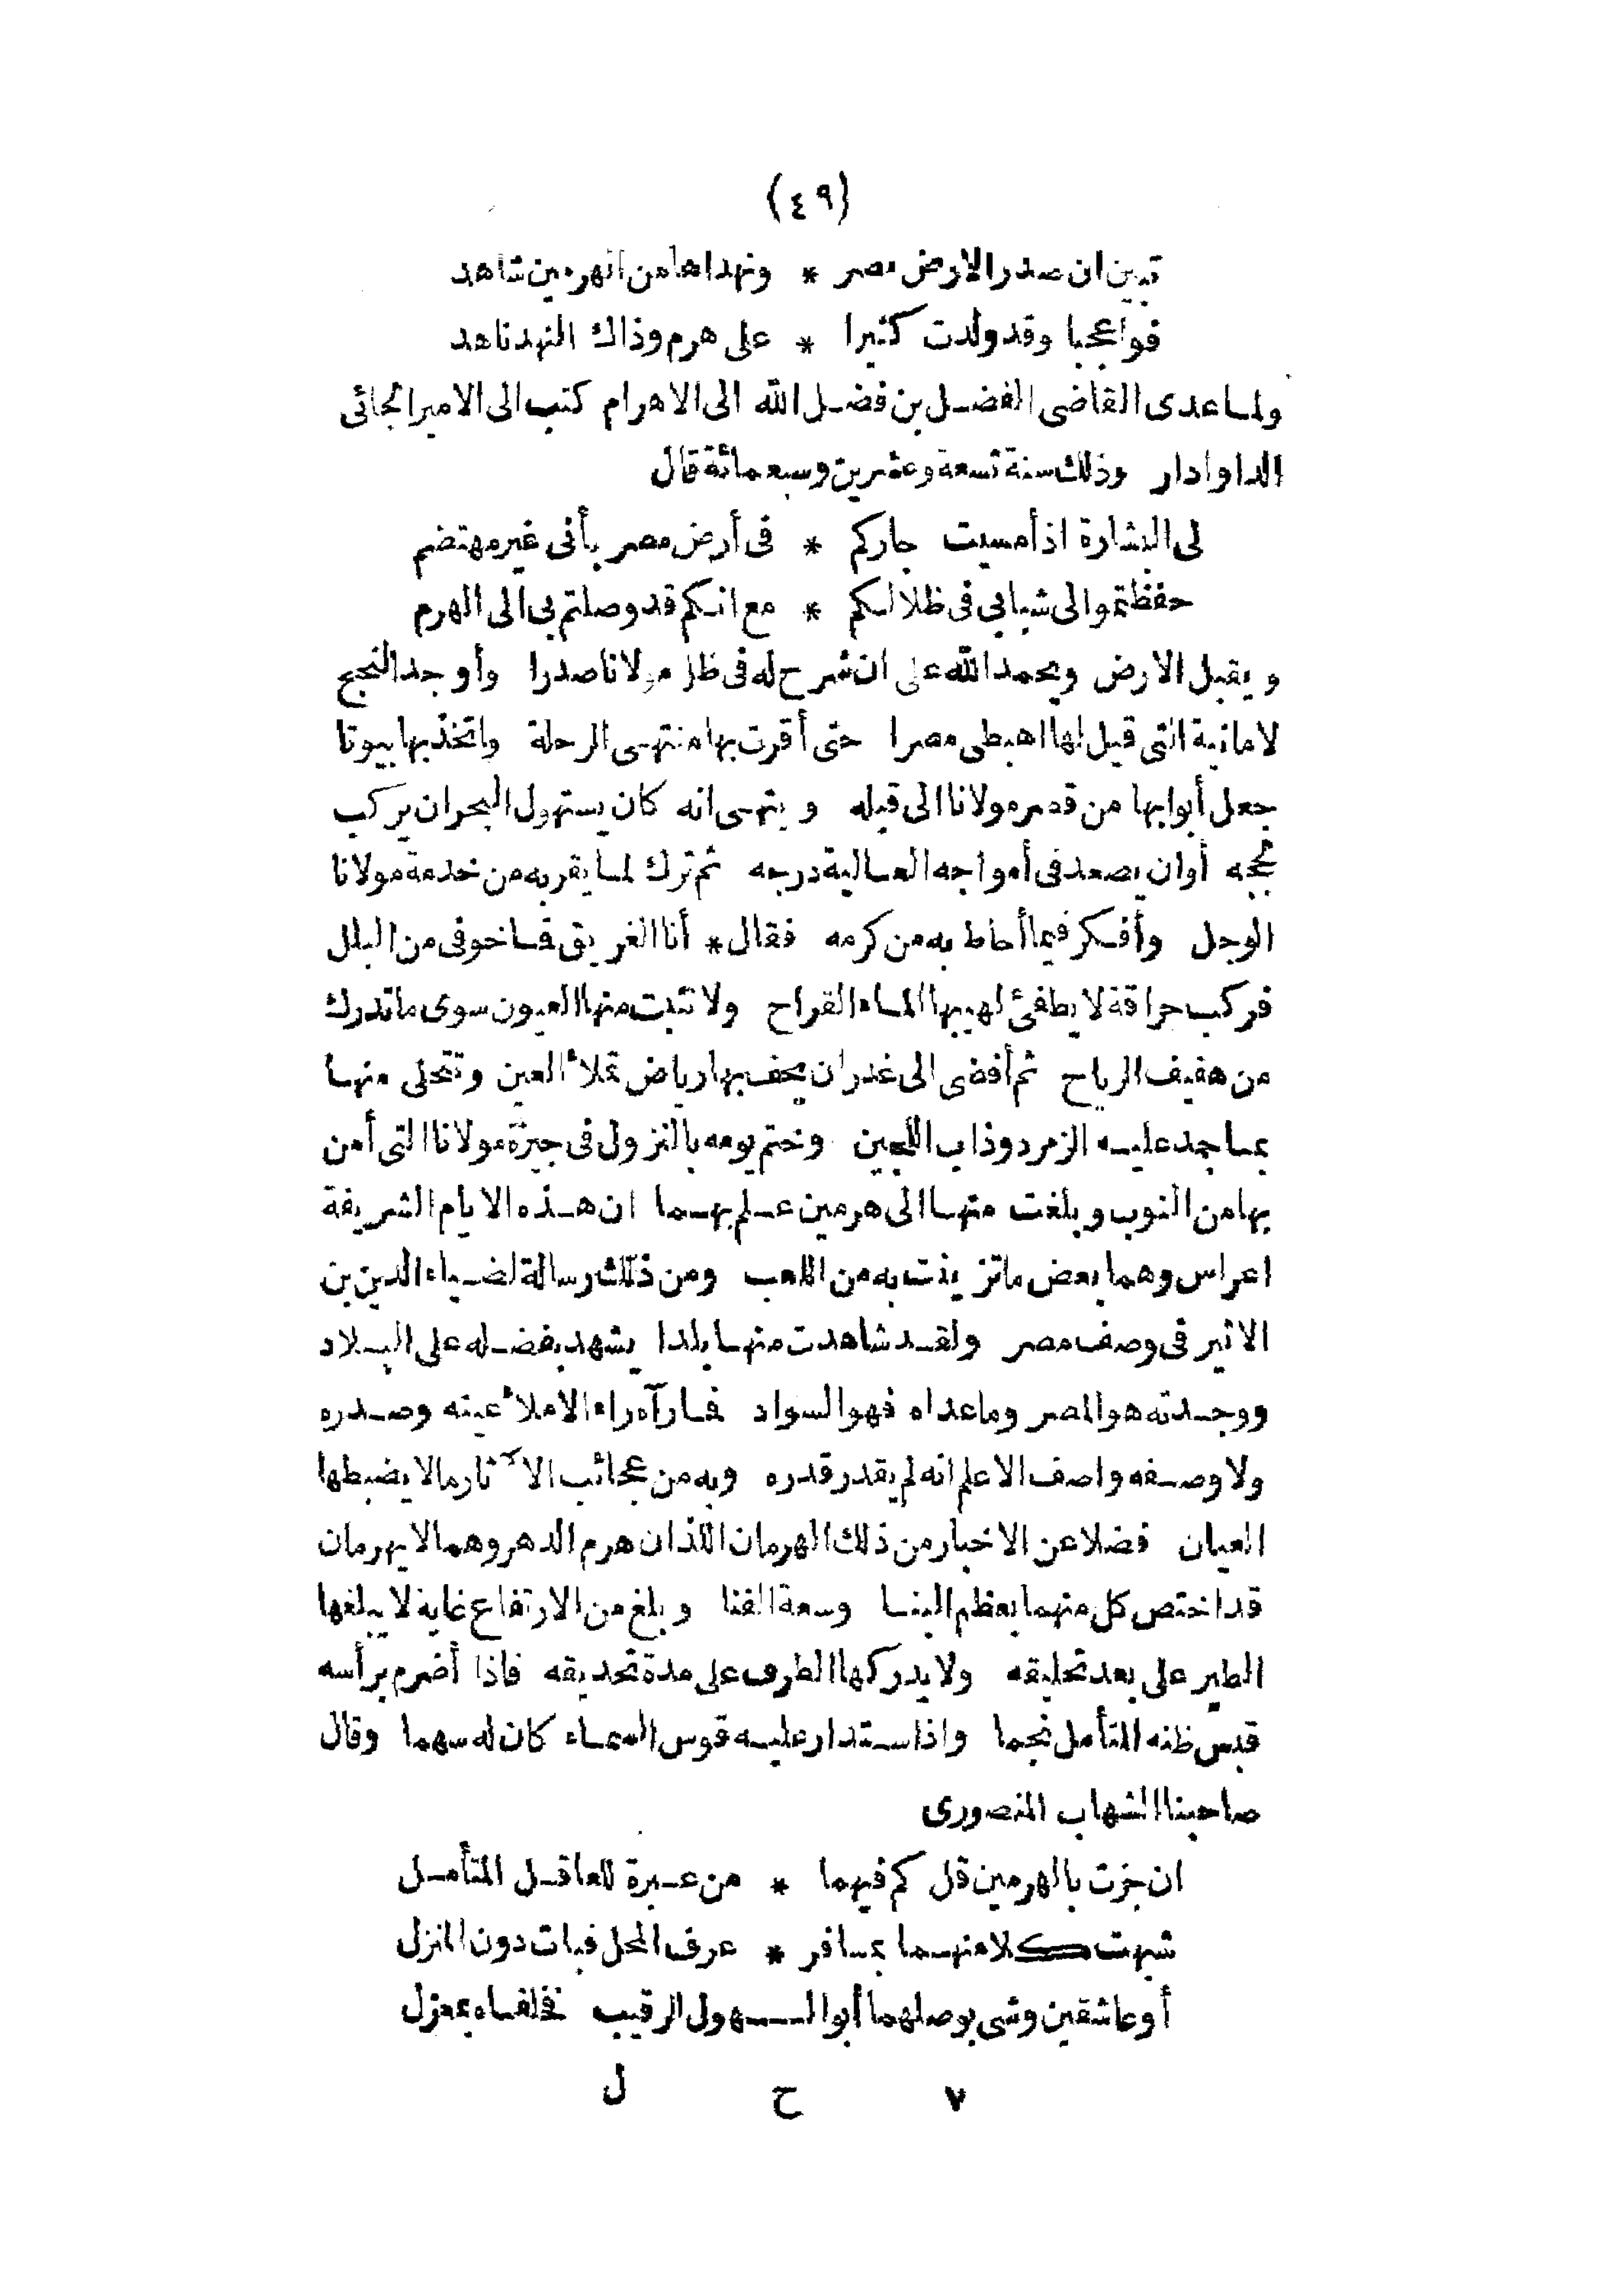 (٤٩)
تبين ان صدر الارض مصر * ونهداها من الهرمين شاهد
فواعجبا وقد ولدت كثيرا * على هرم وذاك النهد ناهد
ولما عدى القاضى الفضل بن فضل الله الى الاهرام كتب الى الامير الجائى
الداوادار وذلك سنة تسعة وعشرين وسبعمائة قال
لى البشارة اذ أمسيت جاركم * فى أرض مصر بأنى غير مهتضم
حفظتموا لى شبابى فى ظلالكم * مع انكم قد وصلتم بى الى الهرم
ويقبل الارض ويحمد الله على ان شرح له فى ظل مولانا صدرا وأوجد النجح
لامانية التى قيل لها اهبطى مصرا حتى أقرت بها منتهى الرحلة واتخذ بها بيوتا
جعل أبوابها من قصر مولانا الى قبله وينهى انه كان يستهول البحر ان يركب
لججه أو ان يصعد فى أمواجه العالية درجه ثم ترك لما يقربه من خدمة مولانا
الوجل وأفكر فيما أحاط به من كرمه فقال * أنا الغريق فما خوفى من البلل
فركب حراقة لا يطفئ لهيبها الماء القراح ولا تثبت منها العيون سوى ما تدرك
من هفيف الرياح ثم أفضى الى غدران يحف بها رياض تملأ العين وتتحلى منها
بما جمد عليه الزمرد وذاب اللجين وختم يومه بالنزول فى جيرة مولانا التى أمن
بها من النوب وبلغت منها الى هرمين علم بهما ان هذه الايام الشريفة
اعراس وهما بعض ما تزينت به من اللعب ومن ذلك رسالة لضياء الدين بن
الاثير فى وصف مصر ولقد شاهدت منها بلدا يشهد بفضله على البلاد
ووجدته هو المصر وما عداه فهو السواد فما رآه راء الا ملأ عينه وصدره
ولا وصفه واصف الا علم انه لم يقدر قدره وبه من عجائب الآثار ما لا يضبطها
العيان فضلا عن الاخبار من ذلك الهرمان اللذان هرم الدهر وهما لا يهرمان
قد اختص كل منهما بعظم البنا وسعة الفنا وبلغ من الارتفاع غاية لا يبلغها
الطير على بعد تحليقه ولا يدركها الطرف على مدة تحديقه فاذا أضرم برأسه
قبس ظنه المتأمل نجما واذا استدار عليه قوس السماء كان له سهما وقال
صاحبنا الشهاب المنصورى
ان جزت بالهرمين قل كم فيهما * من عبرة للعاقل المتأمل
شبهت كلا منهما بمسافر * عرف المحل فبات دون المنزل
أو عاشقين وشى بوصلهما أبو الهول الرقيب فخلفاه بمعزل
٧ ح ل